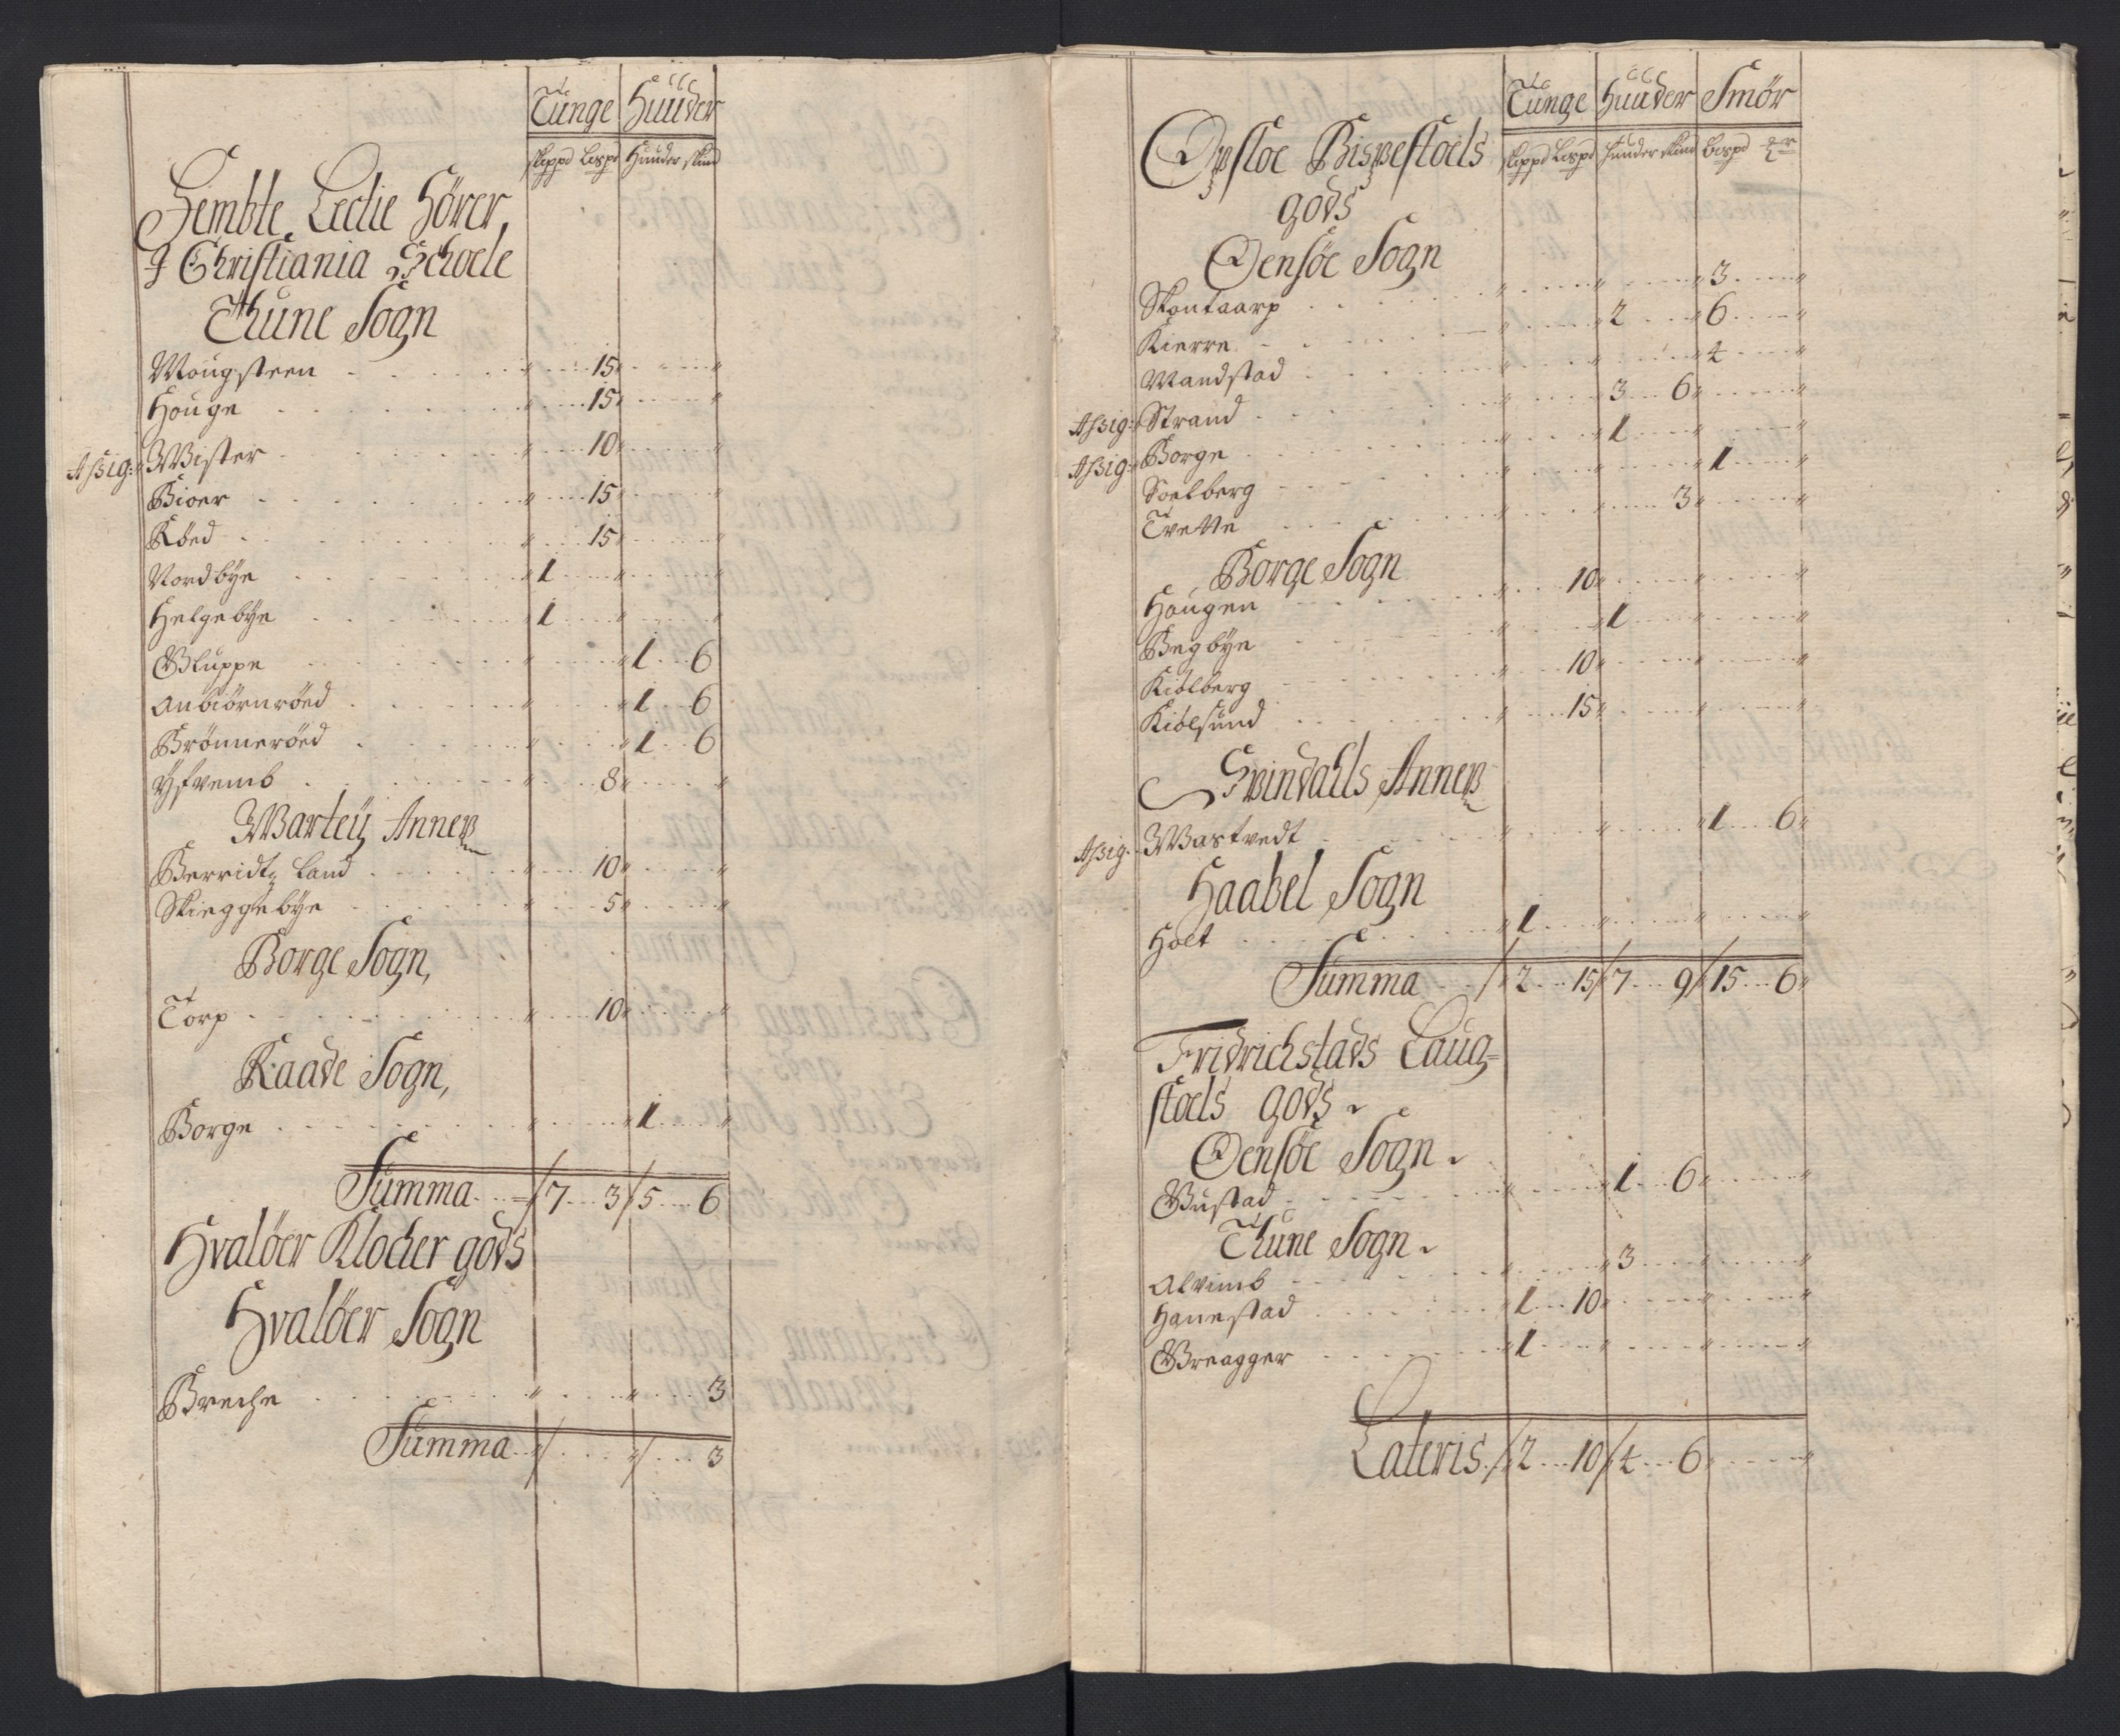 Tunge Huuder
skippd Lispd Huuder skind
Fembte Lectie Hörer
J Christiania Schoele
Thune Sogn
Mougsteen 15
Houge 15
Assig: Wister 10
Bioer 15
Röed 15
Nordbÿe 1
Helgebÿe 1
Gluppe 1 6
Anbiörnröed 1 6
Brönneröed 1 6
Yfvemb 8
Warteÿ Annex
Berridtz Land 10
Skieggebÿe 5
Borge Sogn,
Torp 10
Raade Sogn,
Borge 1
Summa 7 3 5 6
Hvalöer Klocher gods
Hvalöer Sogn
Breche 3
Summa 3
Tunge Huuder Smör
skippd Lispd Huuder skind Bispd
Opsloe Bispestoels
gods
Oensöe Sogn
Skontaarp 3
Kierre 2 6
Mandstad 4
Assig: Strand 3 6
Assig: Borge 1
Soelberg 1
Tvette 3
Borge Sogn
Hougen 10
Begbÿe 1
Kiölberg 10
Kiölsund 15
Svindahls Annex
Assig: Wastvedt 1 6
Haabel Sogn
Holt 1
Summa 2 15 7 9 15 6
Fridrichstads Laug-
stoels gods
Oensöe Sogn
Gustad 1 6
Thune Sogn
Alvimb 3
Hanestad 1 10
Greagger 1
Lateris 2 10 4 6